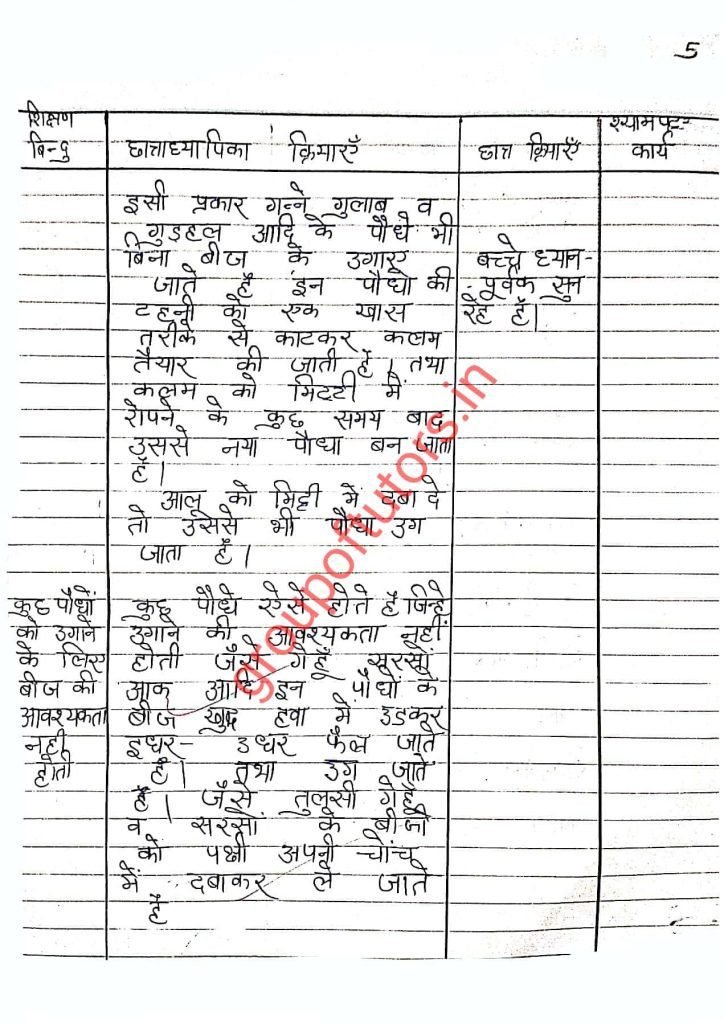 5
शिक्षण
बिन्दु
छात्राध्यापिका क्रियाएँ
छात्र क्रियाएँ
श्यामपट्ट-
कार्य
इसी प्रकार गन्ने गुलाब व
गुड़हल आदि के पौधे भी
बिना बीज के उगाए
जाते हैं इन पौधो की
टहनी को एक खास
तरीके से काटकर कलम
तैयार की जाती है। तथा
कलम को मिटटी में
रोपने के कुछ समय बाद
उससे नया पौधा बन जाता
है।
आलू को मिट्टी में दबा दे
तो उससे भी पौधा उग
जाता है।
बच्चे ध्यान-
पूर्वक सुन
रहे हैं।
कुछ पौधों
को उगाने
के लिए
बीज की
आवश्यकता
नही
होती
कुछ पौधे ऐसे होते है जिन्हे
उगाने की आवश्यकता नहीं
होती जैसे गेहूँ सरसों
आक आदि इन पौधों के
बीज खुद हवा में उडकर
इधर- उधर फैल जाते
है। तथा उग जाते
है। जैसे तुलसी गेहूँ
व सरसों के बीजो
को पक्षी अपनी चोंच
में दबाकर ले जाते
हैं
groupoftutors.in